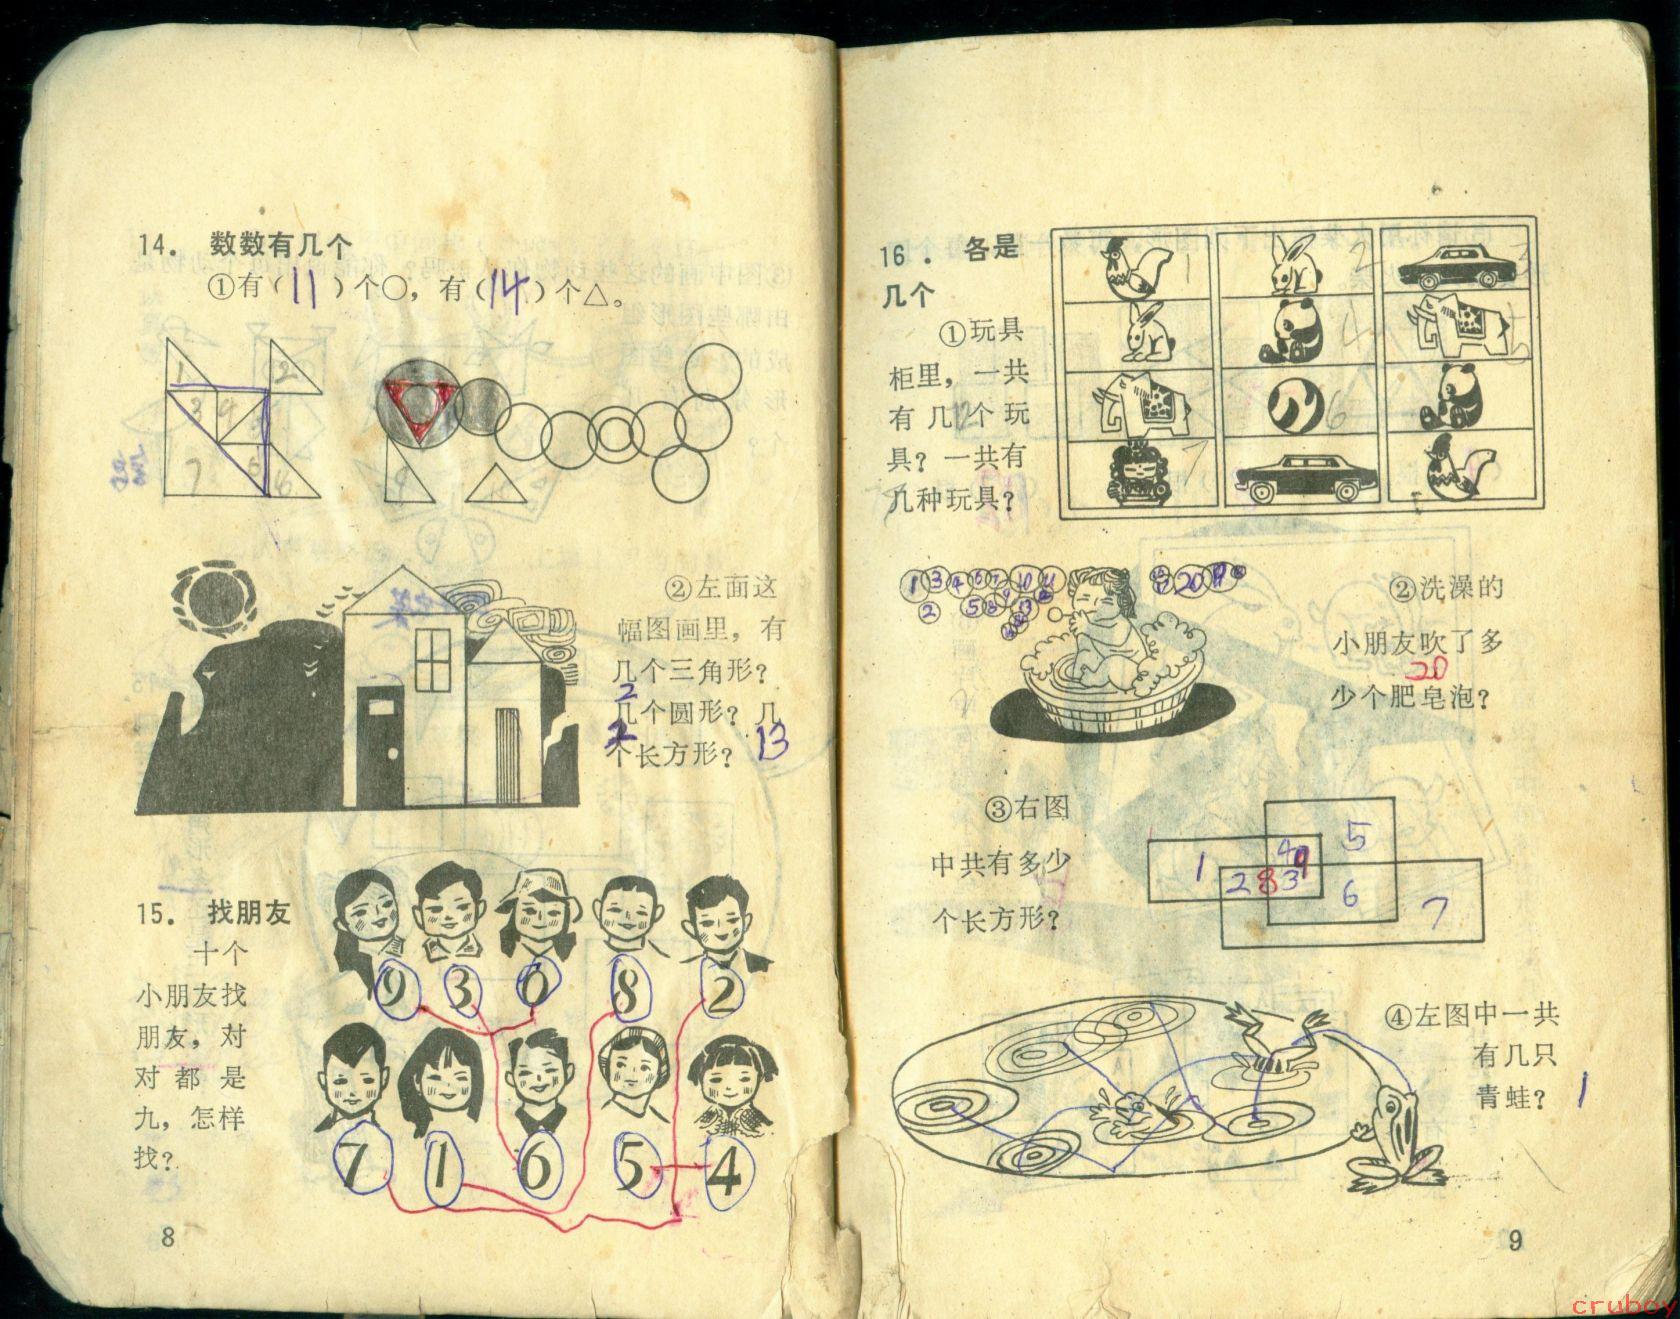 14. 数数有几个
①有(11)个○，有(14)个△。
1
2
3 4
5
6
7
9
②左面这
幅图画里，有
几个三角形？
2
几个圆形？几
2
个长方形？ 13
15. 找朋友
十个
小朋友找
朋友，对
对都是
九，怎样
找？
9 3 0 8 2
7 1 6 5 4
8
16. 各是
几个
①玩具
柜里，一共
有几12个玩
具？一共有
几种玩具？
1 2 3
4 5
6
7
②洗澡的
小朋友吹了多
20
少个肥皂泡？
③右图
中共有多少
个长方形？
1 2 8 3 4 9 5 6 7
④左图中一共
有几只
青蛙？ 1
9
cruboy